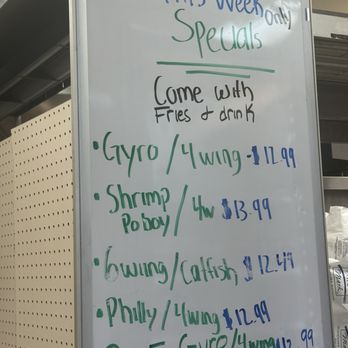 This Week
Only
Specials
Come with
Fries & drink
• Gyro / 4 wing - $12.99
• Shrimp
Poboy / 4w $13.99
• 6 wing / Catfish $12.49
• Philly / 4 wing $12.99
Gyro / 4 wing $12.99